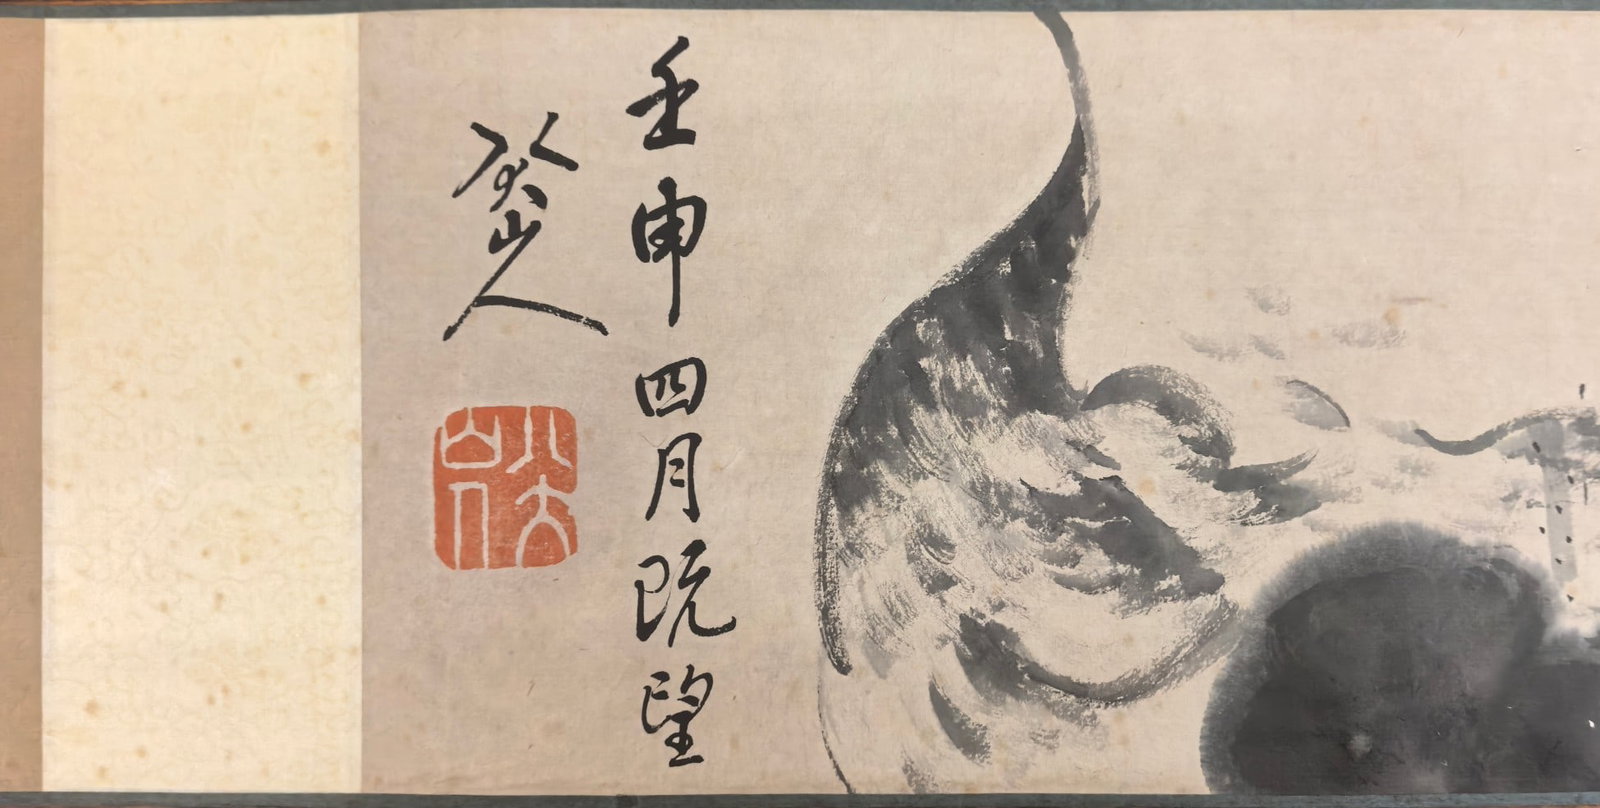 壬申四月既望
八大山人
八大山人